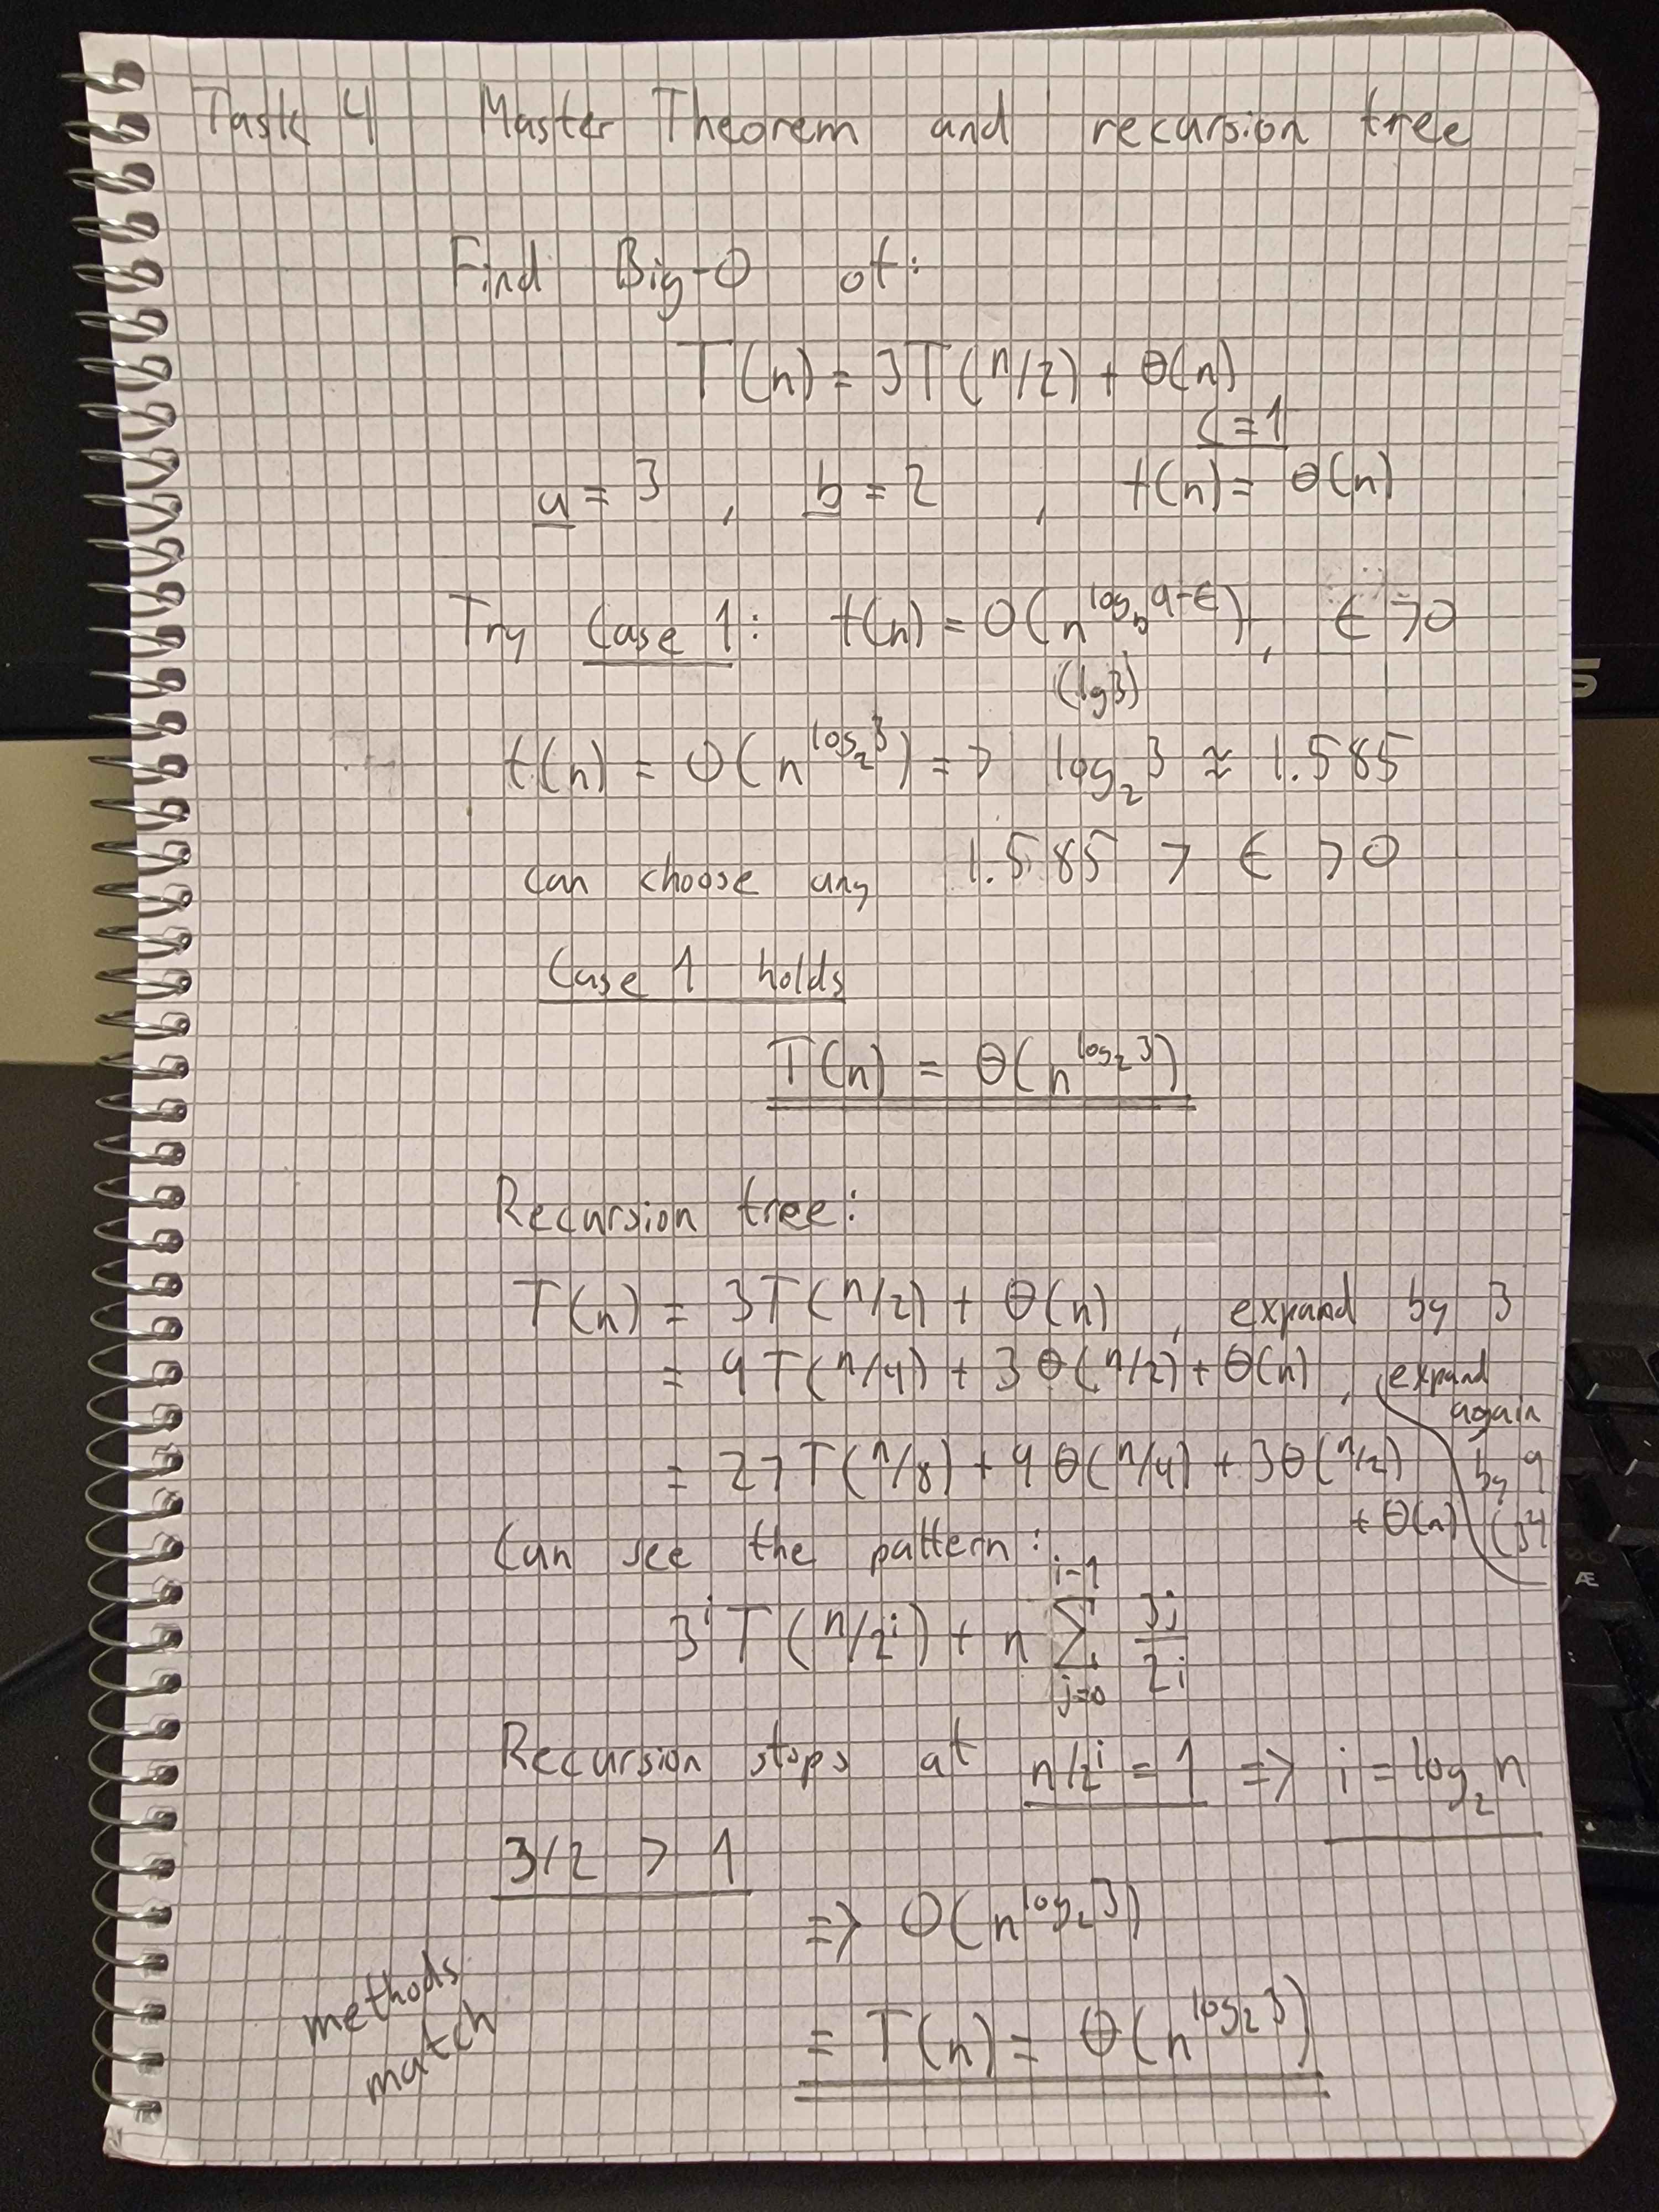 Task 4 Master Theorem and recursion tree
Find Big-O of:
T(n) = 3T(n/2) + θ(n)
c = 1
a = 3 , b = 2 , f(n) = θ(n)
Try Case 1: f(n) = O(n^(log_b a-ϵ)), ϵ > 0
(lg3)
f(n) = O(n^(log_2 3)) => log_2 3 ≈ 1.585
can choose any 1.585 > ϵ > 0
Case 1 holds
T(n) = θ(n^(log_2 3))
Recursion tree:
T(n) = 3T(n/2) + θ(n) , expand by 3
= 9T(n/4) + 3θ(n/2) + θ(n) , expand
again
= 27T(n/8) + 9θ(n/4) + 3θ(n/2) by 9
+ θ(n)
Can see the pattern:
3^i T(n/2^i) + n ∑_(j=0)^(i-1) 3j/2j
Recursion stops at n/2^i = 1 => i = log_2 n
3/2 > 1
=> O(n^(log_2 3))
methods
match
= T(n) = θ(n^(log_2 3))